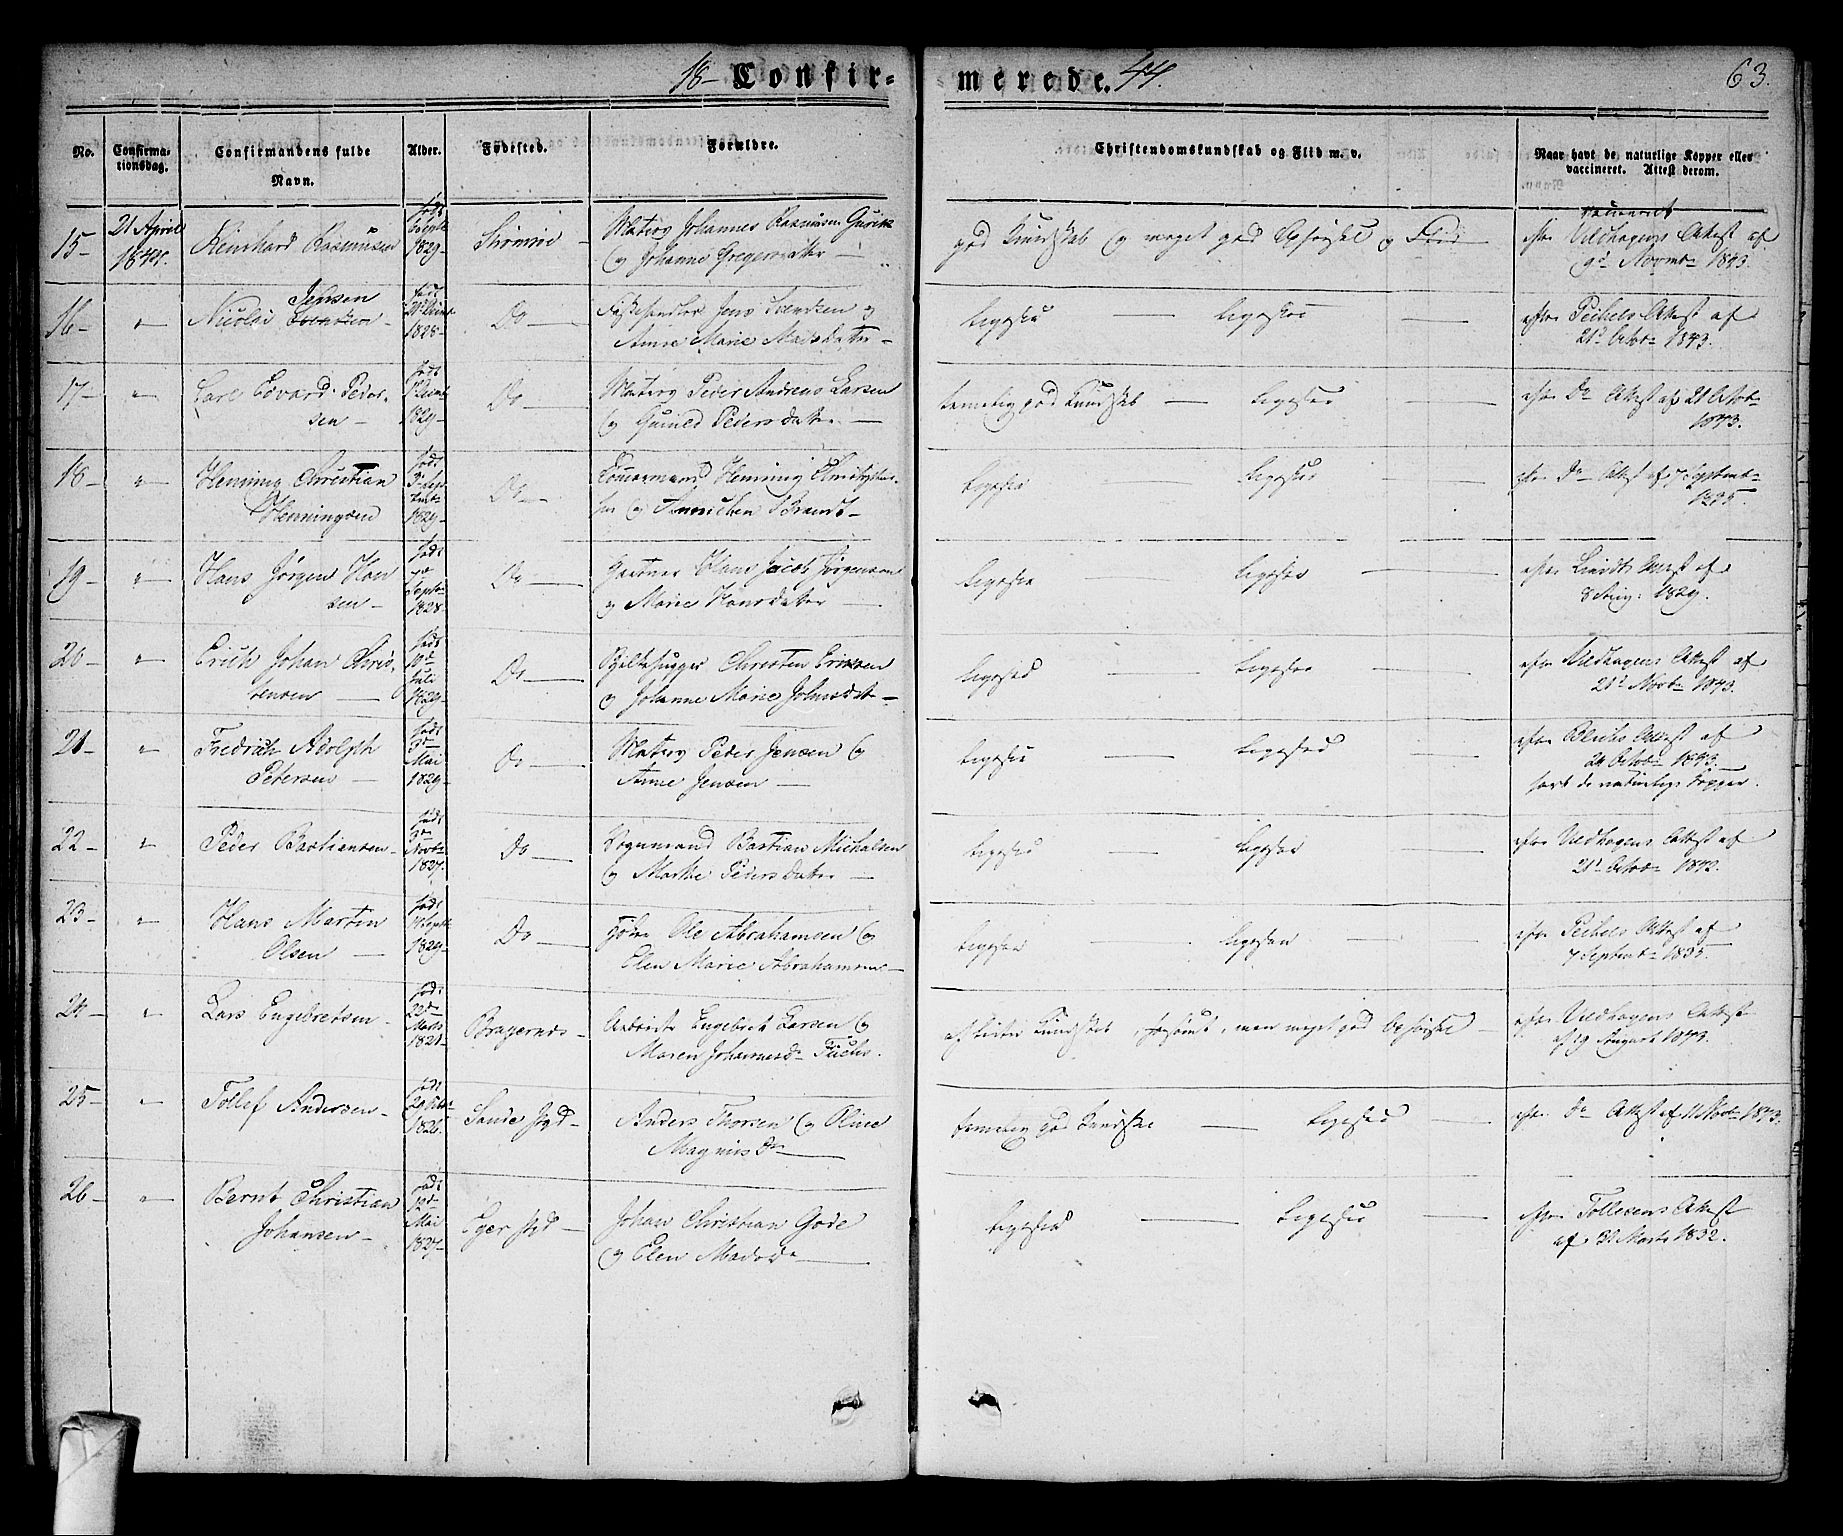 18- Confir-
merede. 44.
63.
No.
Confirma-
tionsdag.
Confirmandens fulde
Navn.
Alder.
Fødested.
Forældre.
Christendomskundskab og Flid m. v.
Naar havt de naturlige Kopper eller
vaccineret. Attest derom.
15-
21 April
1844.
Reinhard Rasmussen
født
1829-
Strømsø -
Matros Johannes Rasmusen
og Johanne Gregersdatter -
god Kundskab og meget god Opførsel og Flid
vaccineret
efter Vildhagens Attest af
9d Novmb 1843.
16-
"
Jensen
Nicolai Svendsen -
født
1828-
Do
Jens Svendsen og
Anne Marie Madsdatter -
Ligeså
Ligeså
efter Peihels Attest af
21d Octob 1843.
17-
"
Carl Edvard Peder-
sen -
født
1829-
Do
Matros Peder Andreas Larsen
og Gunild Pedersdatter -
temelig god Kundskab
Ligeså
efter Do Attest af 21 Octob-
1843.
18-
"
Henning Christian
Henningsen
født
1829-
Do
Tømermand Henning Christophers-
sen og Annichen Brandt-
Ligeså
Ligeså
efter Do Attest af 7 Septemb-
1835.
19-
"
Hans Jørgen Han
sen -
født
Septb
1828.
Do
Gartner Hans Jacob Jørgensen
og Marie Hansdatter
Ligeså
Ligeså
efter Lindts Attest af
1829.
20-
"
Erich Johan Chris-
tensen
født
10d
Juli
1829-
Do
Christen Ericksen
og Johanne Marie Johnsdatt-
Ligeså
Ligeså
efter Vildhagens Attest af
21d Novb 1843.
21-
"
Fredrich Adolph
Petersen
født
3d
Mai
1829-
Do
Matros Peder Jensen og
Anne Jensen
Ligeså
Ligeså
efter Attest af
24 Octob 1843.
havt de naturlige Kopper.
22-
"
Peder Bastiansen-
født
Novb
1827.
Do
Bastian Michalsen
og Marthe Pedersdatter
Ligeså
Ligeså
efter Vildhagens Attest af
21d Octob 1843.
23-
"
Hans Martin
Olsen
født
1829-
Do
Ole Abrahamsen og
Elen Marie Abrahamsen
Ligeså
Ligeså
efter Peihels Attest af
7 Septemb 1835-
24-
"
Lars Engebretsen
født
22d
Marts
1821-
Bragernes-
Engebret Larsen og
Maren Johannesd Fuchs.
Kundskab, men meget god Opførsel
efter Vildhagens Attest
af 9 August 1843.
25-
"
Tollef Andersen-
født
1826.
Sande Pgd-
Anders Thorsen og Oline
Magnusd
temelig god Kundskab
Ligeså
efter Do Attest af 11 Novb 1843.
26-
"
Bernt Christian
Johansen-
født
12d
Mai
1827-
Eger Pgd-
Johan Christian Gode
og Elen Madsd
Ligeså
Ligeså
efter Tollesens Attest
af 31 Marts 1832.